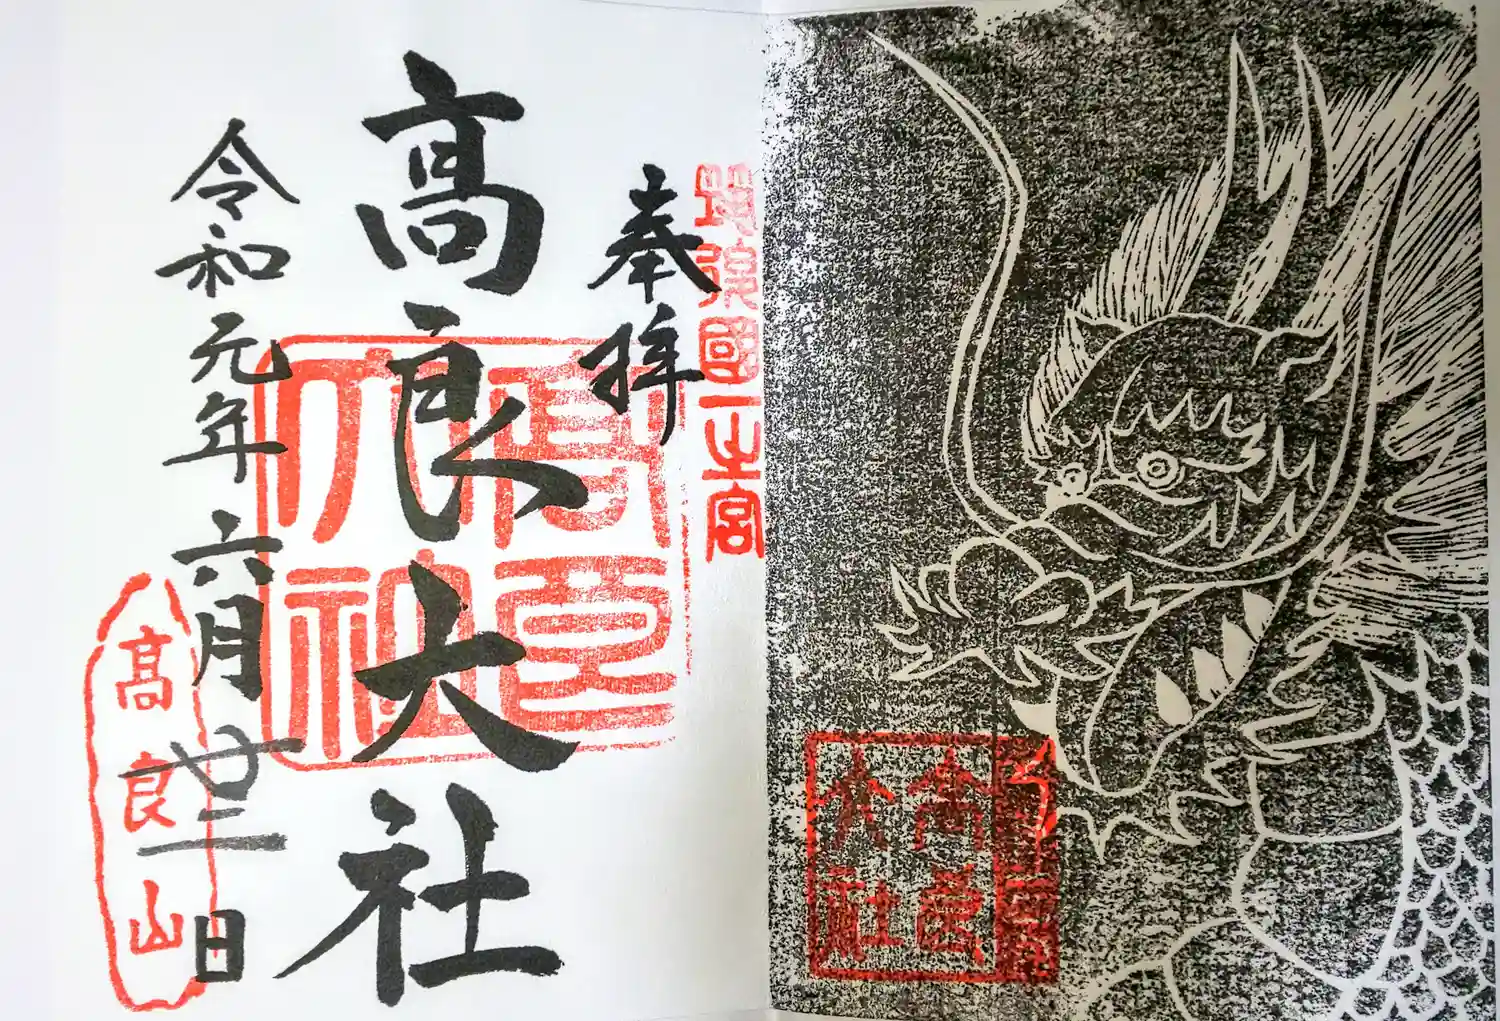 筑後國一之宮
奉拝
高良大社
高良大社
令和元年六月廿二日
高良山
高良大社